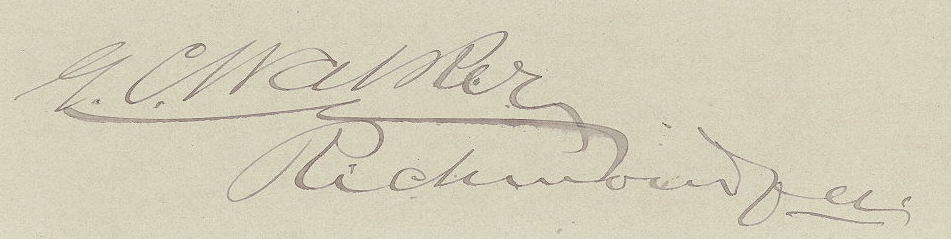 G. C. Walker
Richmond Va.